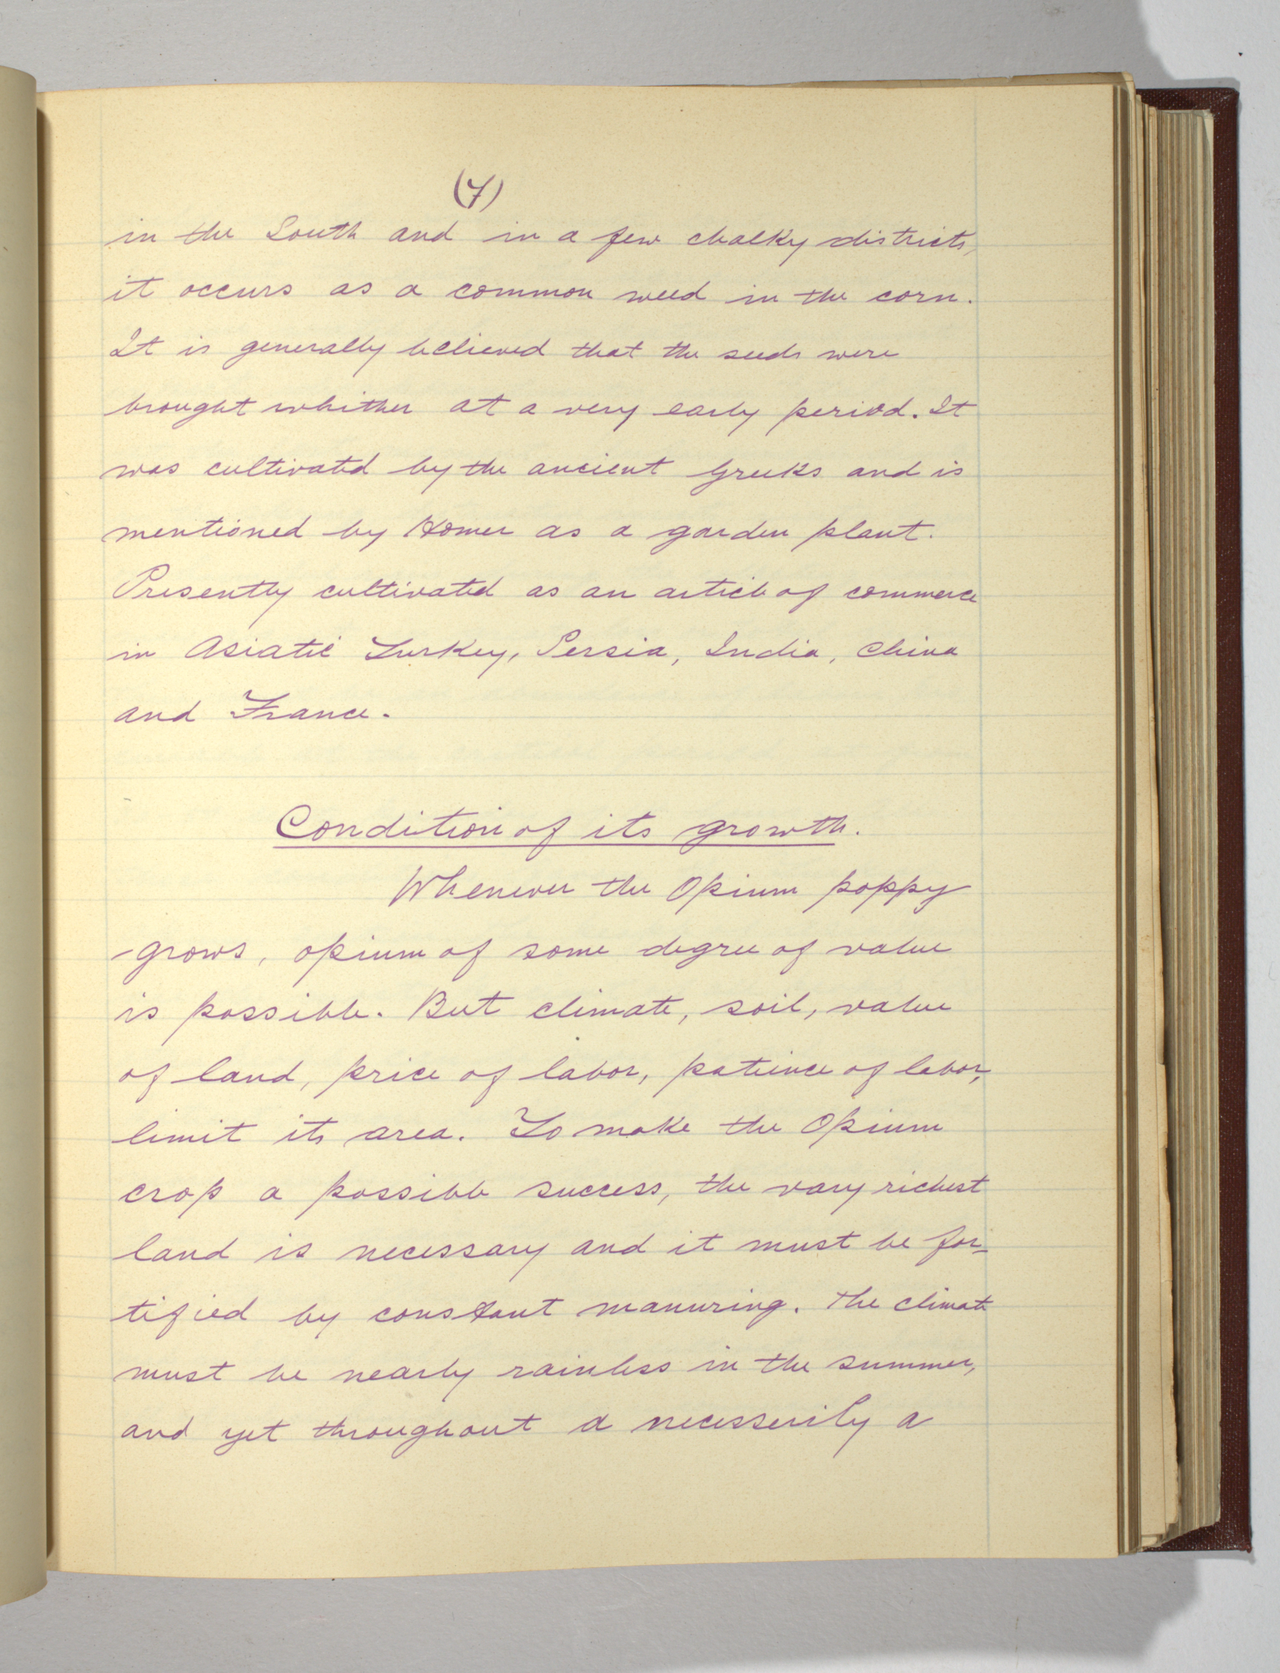 (7)
in the South and in a few chalky districts,
it occurs as a common weed in the corn.
It is generally believed that the seeds were
brought whither at a very early period. It
was cultivated by the ancient Greeks and is
mentioned by Homer as a garden plant.
Presently cultivated as an article of commerce
in Asiatic Turkey, Persia, India, China
and France.
Condition of its growth.
Whenever the Opium poppy
grows, opium of some degree of value
is possible. But climate, soil, value
of land, price of labor, patience of labor,
limit its area. To make the Opium
crop a possible success, the vary richest
land is necessary and it must be for-
tified by constant manuring. The climate
must be nearly rainless in the summer,
and yet throughout a necesserily a